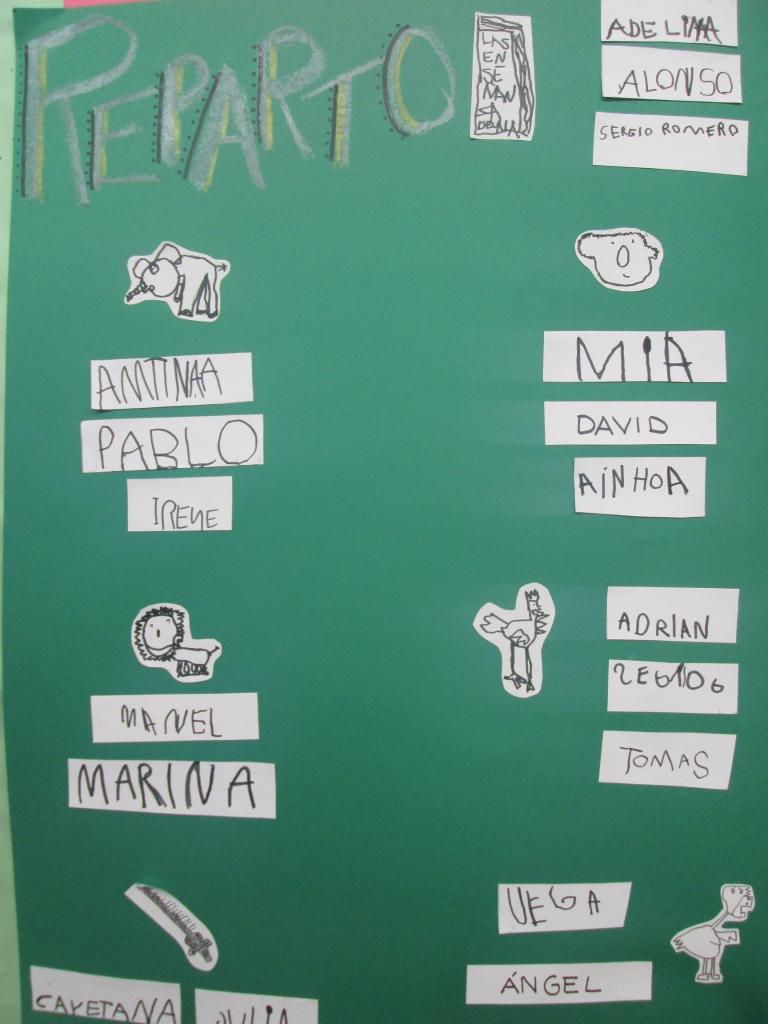 REPARTO
LAS
EN-
SE
ÑAN
ADELINA
ALONSO
SERGIO ROMERO
PABLO
IRENE
MIA
DAVID
AINHOA
MANEL
MARINA
ADRIAN
TOMAS
VEGA
ÁNGEL
CAYETANA
JULIA